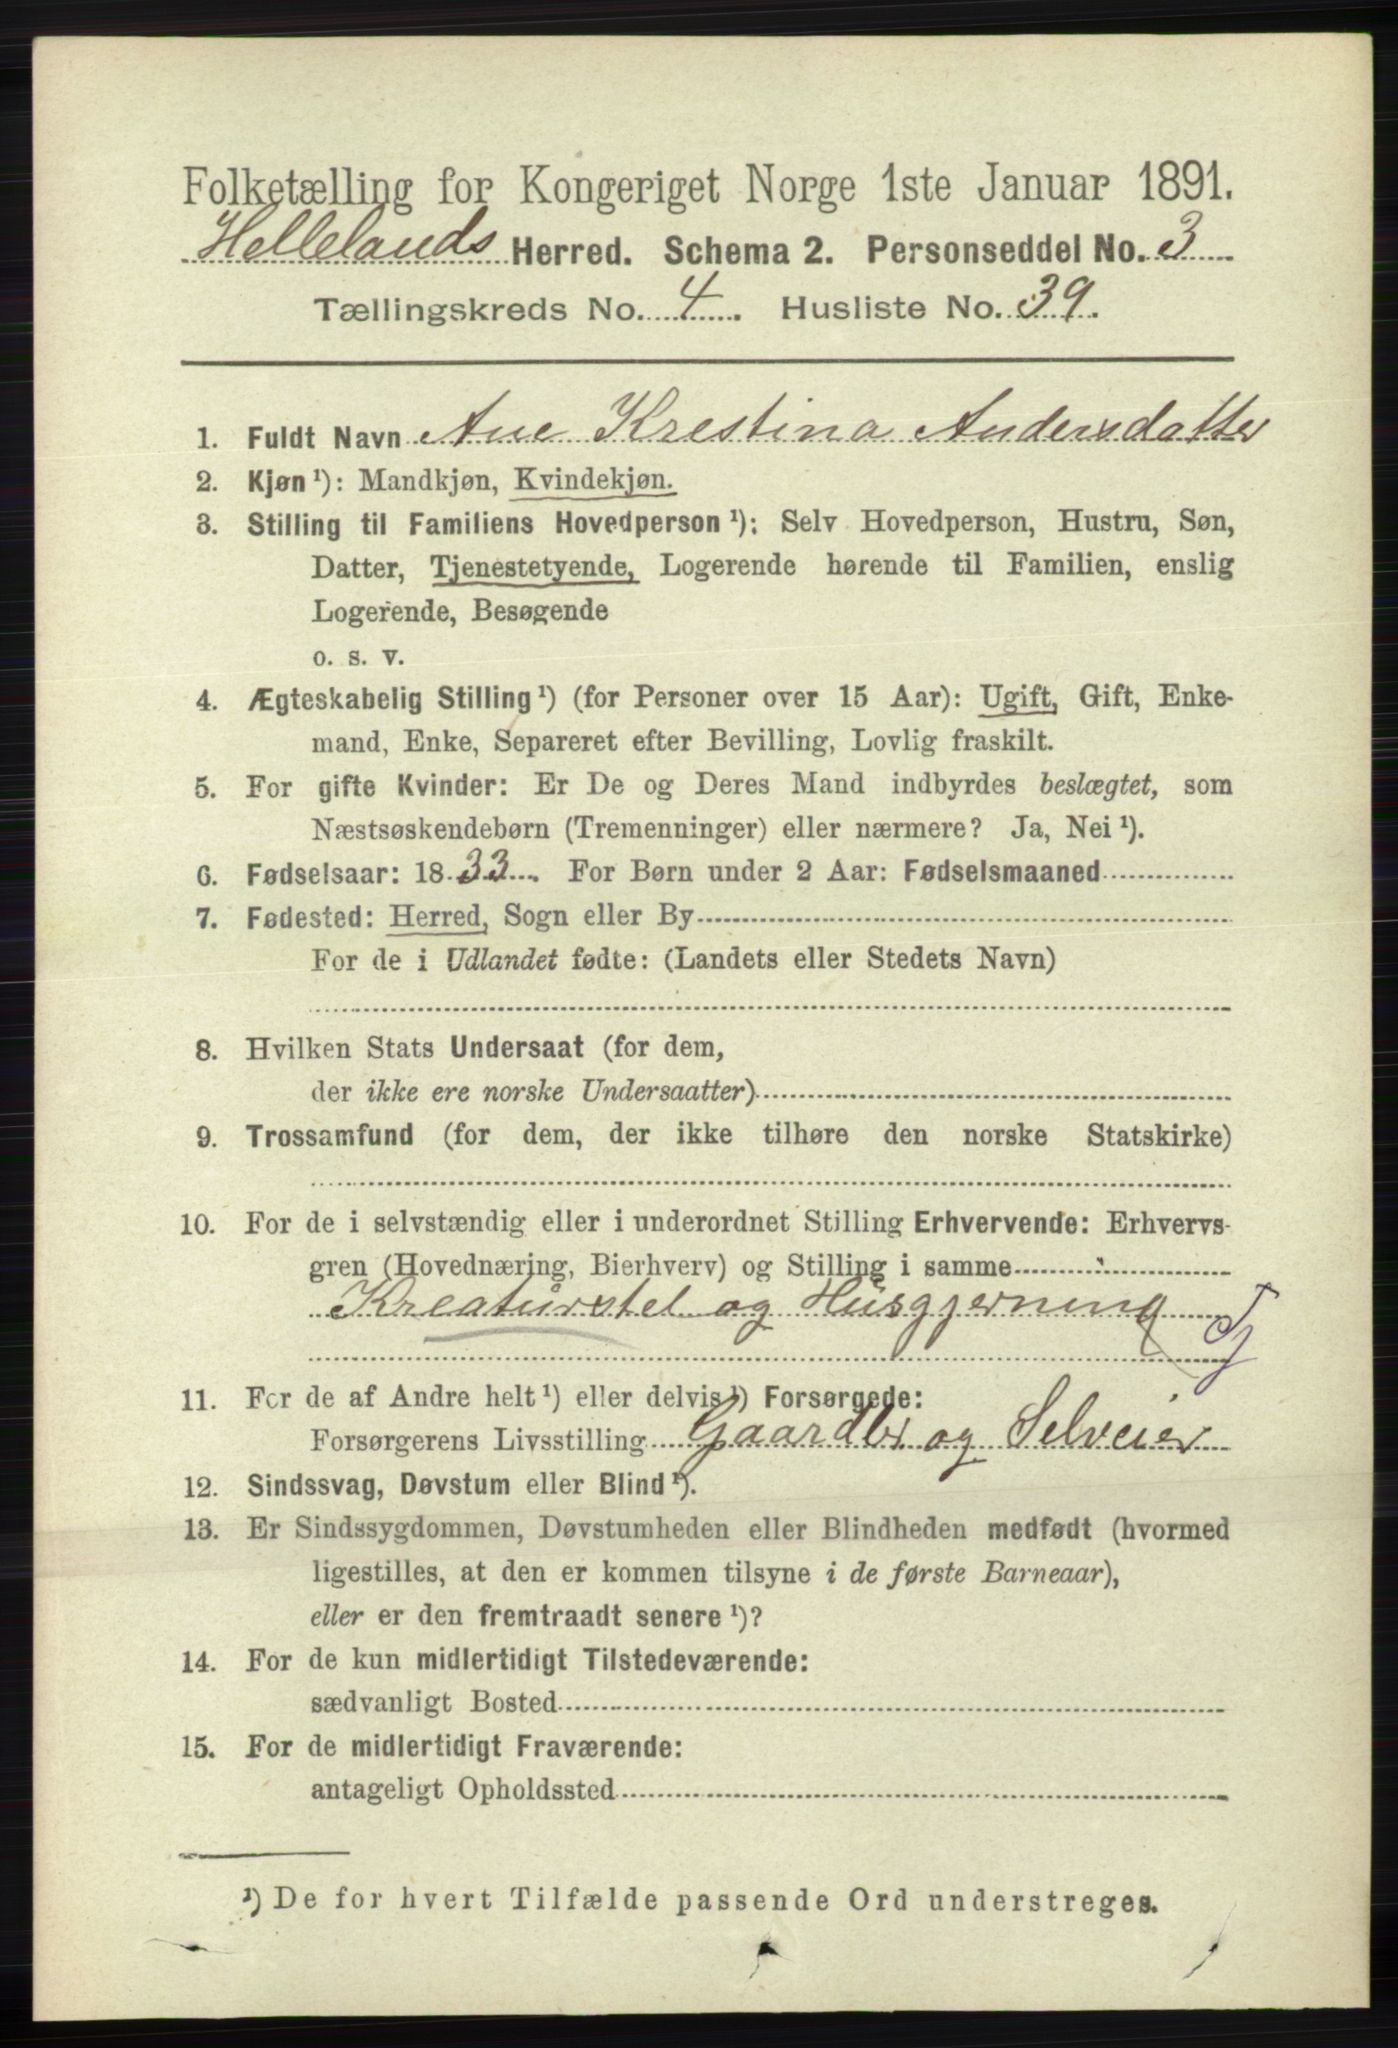 Folketælling for Kongeriget Norge 1ste Januar 1891.
Hellelands Herred. Schema 2. Personseddel No. 3
Tællingskreds No. 4. Husliste No. 39.
1. Fuldt Navn Ane Krestina Andersdatter
2. Kjøn ¹): Mandkjøn, Kvindekjøn.
3. Stilling til Familiens Hovedperson ¹): Selv Hovedperson, Hustru, Søn,
Datter, Tjenestetyende, Logerende hørende til Familien, enslig
Logerende, Besøgende
o. s. v.
4. Ægteskabelig Stilling ¹) (for Personer over 15 Aar): Ugift, Gift, Enke-
mand, Enke, Separeret efter Bevilling, Lovlig fraskilt.
5. For gifte Kvinder: Er De og Deres Mand indbyrdes beslægtet, som
Næstsøskendebørn (Tremenninger) eller nærmere? Ja, Nei ¹).
6. Fødselsaar: 1833. For Børn under 2 Aar: Fødselsmaaned
7. Fødested: Herred, Sogn eller By
For de i Udlandet fødte: (Landets eller Stedets Navn)
8. Hvilken Stats Undersaat (for dem,
der ikke ere norske Undersaatter)
9. Trossamfund (for dem, der ikke tilhøre den norske Statskirke)
10. For de i selvstændig eller i underordnet Stilling Erhvervende: Erhvervs-
gren (Hovednæring, Bierhverv) og Stilling i samme
Kreaturstel og Husgjerning
Tj
11. For de af Andre helt ¹) eller delvis ¹) Forsørgede:
Forsørgerens Livsstilling Gaardbr og Selveier
12. Sindssvag, Døvstum eller Blind ¹).
13. Er Sindssygdommen, Døvstumheden eller Blindheden medfødt (hvormed
ligestilles, at den er kommen tilsyne i de første Barneaar),
eller er den fremtraadt senere ¹)?
14. For de kun midlertidigt Tilstedeværende:
sædvanligt Bosted
15. For de midlertidigt Fraværende:
antageligt Opholdssted
¹) De for hvert Tilfælde passende Ord understreges.